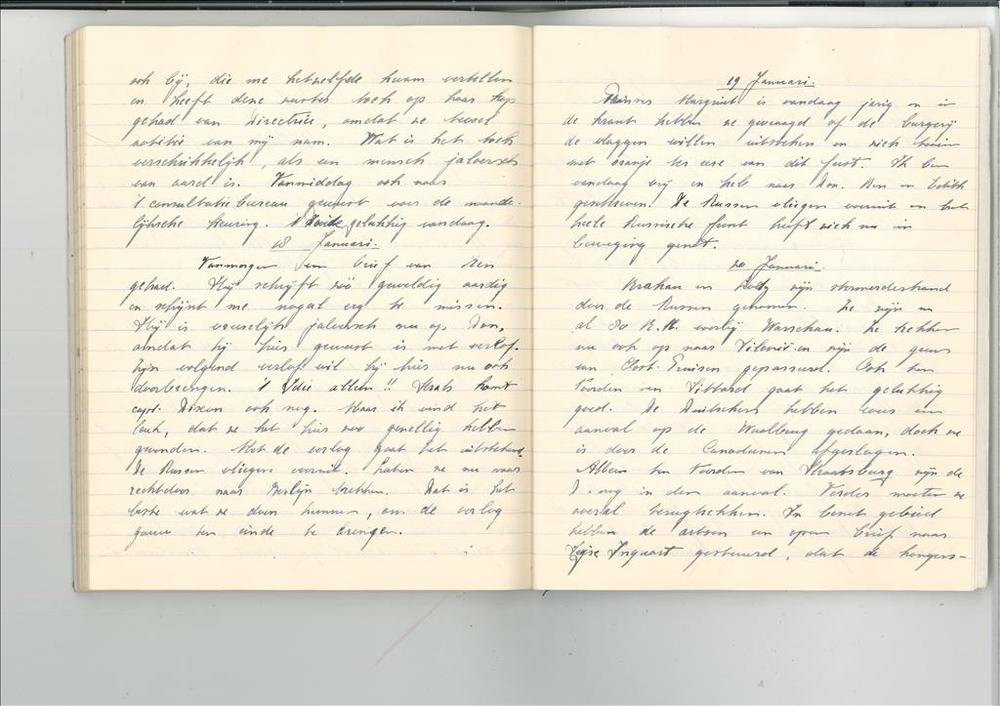 ook bij, die me hetzelfde kwam vertellen
en heeft deze zuster toch op haar kop
gehad van Directrice, omdat ze teveel
notitie van mij nam. Wat is het toch
verschrikkelijk, als een mensch jaloersch
van aard is. Vanmiddag ook naar
't consultatie bureau geweest voor de maande-
lijksche keuring. gelukkig vandaag.
18 Januari.
Vanmorgen een brief van Ken
gehad. Hij schrijft zoo geweldig aardig
en schijnt me nogal erg te missen.
Hij is vreeselijk jaloersch nu op Don,
omdat hij hier geweest is met verlof.
Zijn volgend verlof wil hij hier nu ook
doorbrengen. allen!! Straks komt
capt. Dixon ook nog. Maar ik vind het
leuk, dat ze het hier zoo gezellig hebben
gevonden. Met de oorlog gaat het uitstekend.
De Russen vliegen vooruit. Laten ze nu maar
rechtdoor naar Berlijn trekken. Dat is het
beste wat ze doen kunnen, om de oorlog
gauw ten einde te brengen.
19 Januari.
Prinses Margriet is vandaag jarig en in
de krant hebben ze gevraagd of de burgerij
de vlaggen willen uitsteken en zich tooien
met oranje ter eere van dit feest. Ik ben
vandaag vrij en heb naar Don. Ken en Edith
geschreven. De Russen vliegen vooruit en het
heele Russische front heeft zich nu in
beweging gezet.
20 Januari.
Krakau en Lodz zijn stormenderhand
door de Russen genomen. Ze zijn nu
al 80 K.M. voorbij Warschau. Ze trekken
nu ook op naar Silezië en zijn de grens
van Oost-Pruisen gepasseerd. Ook ten
Noorden van Sittard gaat het gelukkig
goed. De Duitschers hebben weer een
aanval op de Waalbrug gedaan, doch ze
is door de Canadeezen afgeslagen.
Alleen ten Noorden van Straatsburg zijn de
D. nog in den aanval. Verder moeten ze
overal terugtrekken. In bezet gebied
hebben de artsen een open brief naar
Zeyss Inquart gestuurd, dat de hongers-